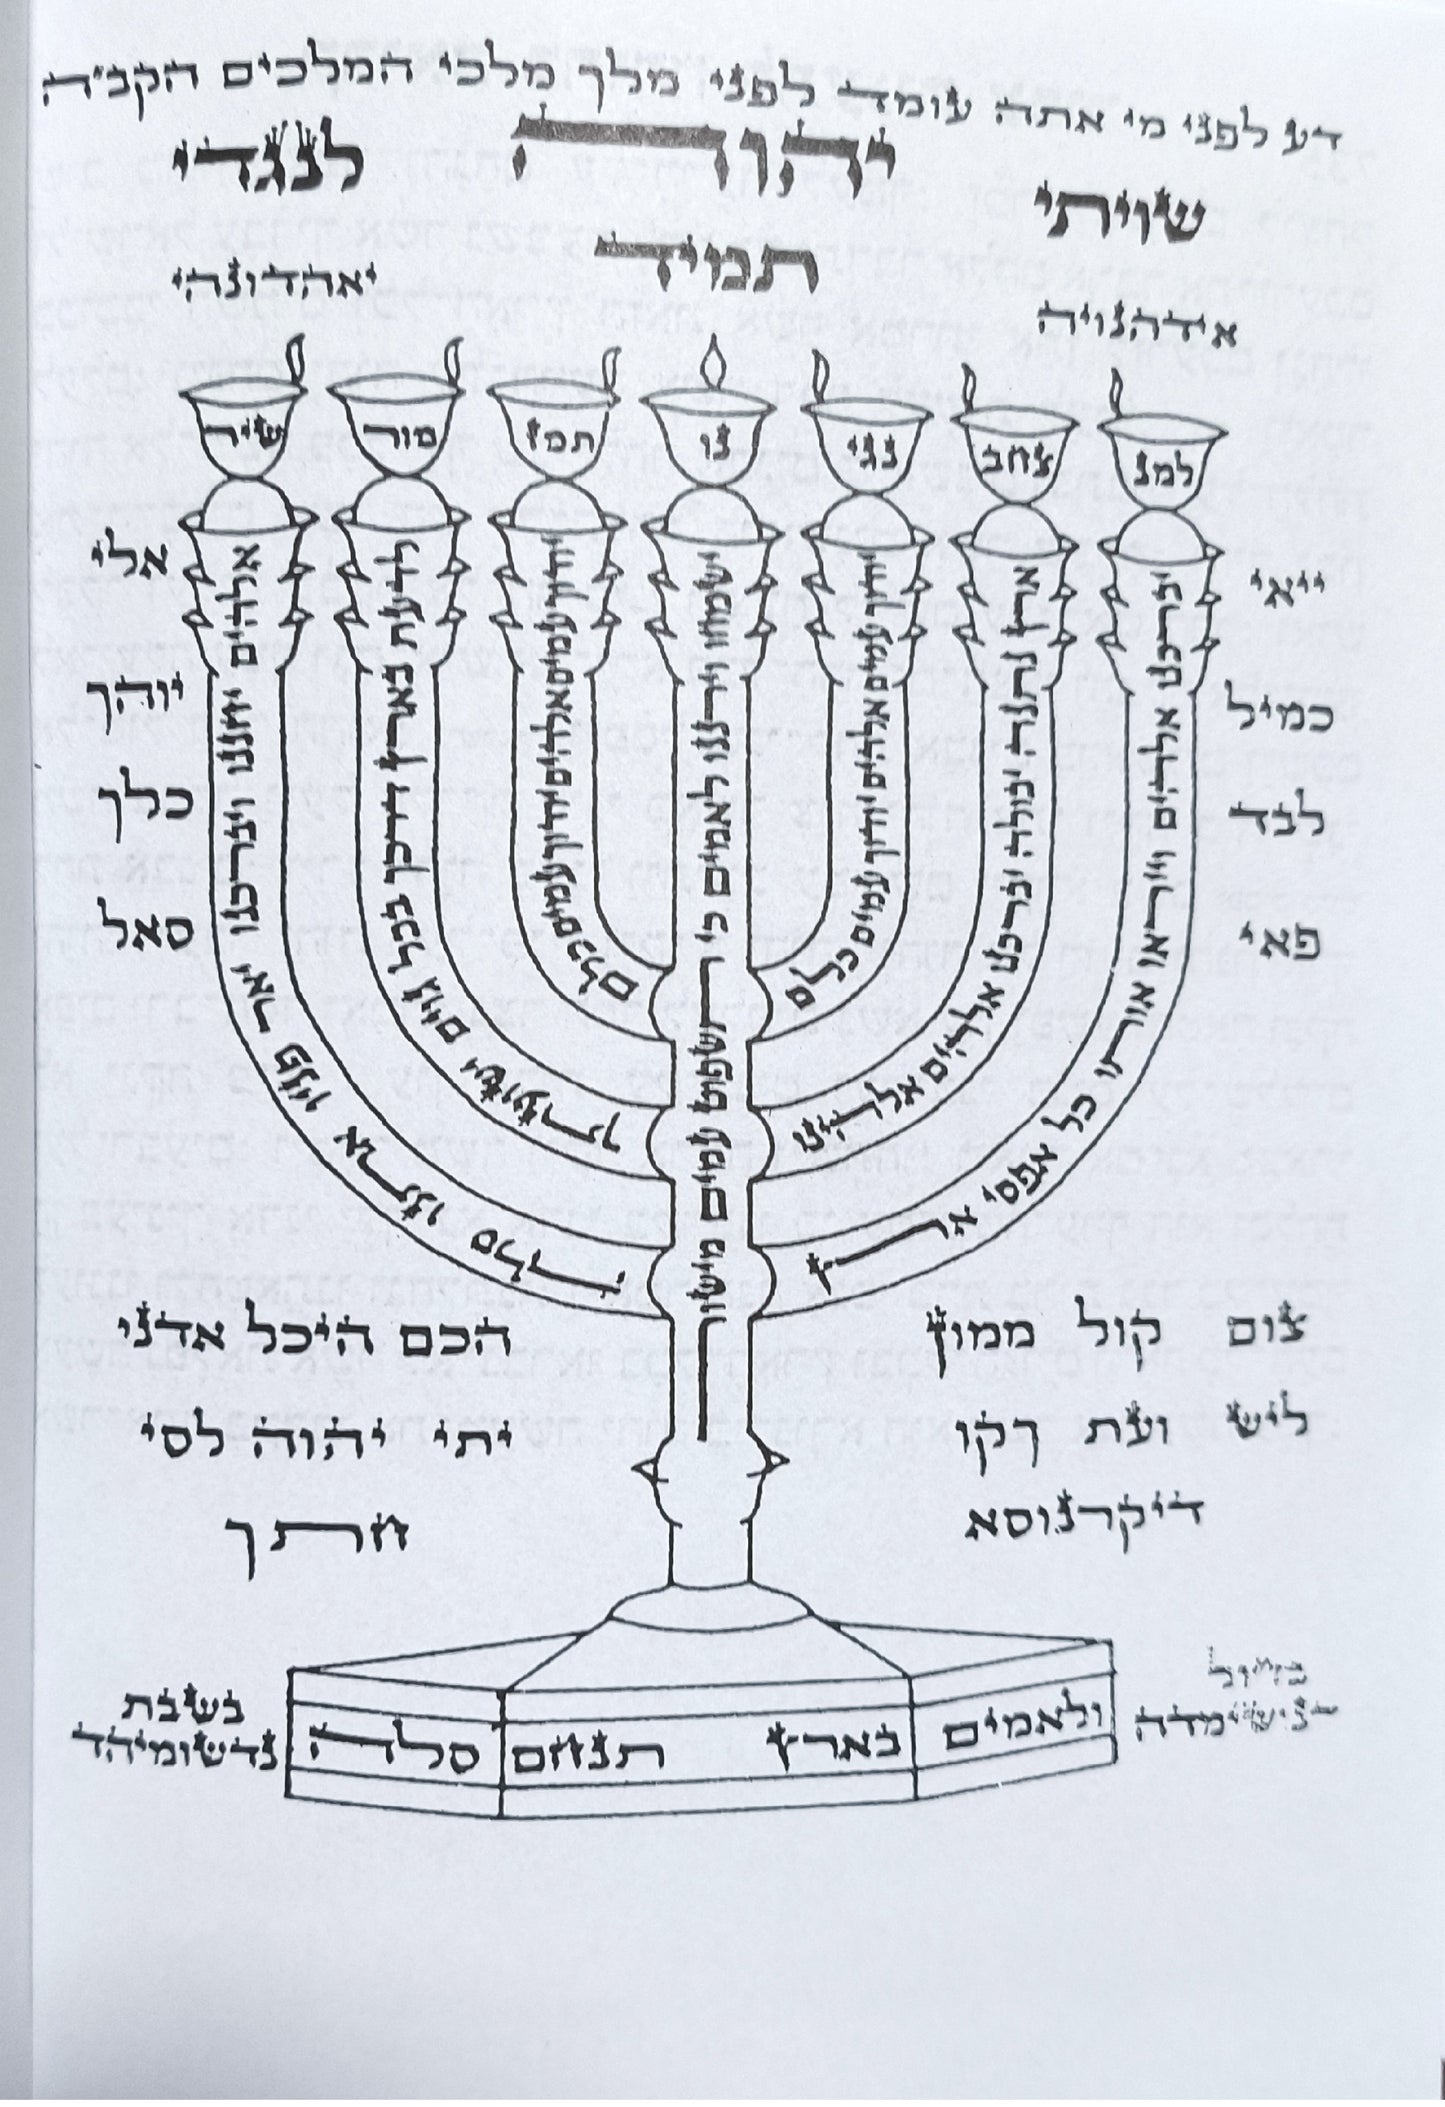 דע לפני מי אתה עומד לפני מלך מלכי המלכים הקב״ה
שויתי יהוה לנגדי
תמיד
אידהנויה יאהדונהי
למנ צחב נגי נו תמז מור שיר
יברכנו אלהים וייראו אותו כל אפסי ארץ
ארץ נתנה יבולה יברכנו אלהים אלהינו
יודוך עמים אלהים יודוך עמים כלם
ישמחו וירננו לאמים כי תשפוט עמים מישור
יודוך עמים אלהים יודוך עמים כלם
לדעת בארץ דרכך בכל גוים ישועתך
אלהים יחננו ויברכנו יאר פניו אתנו סלה
ייאי
כמיל
לבד
פאי
אלי
יוהך
כלך
סאל
צום קול ממון
ליש ועת רקו
דיקרנוסא
הכם היכל אדני
יתי יהוה לסי
חתך
ולאמים בארץ תנחם סלה
בשבת